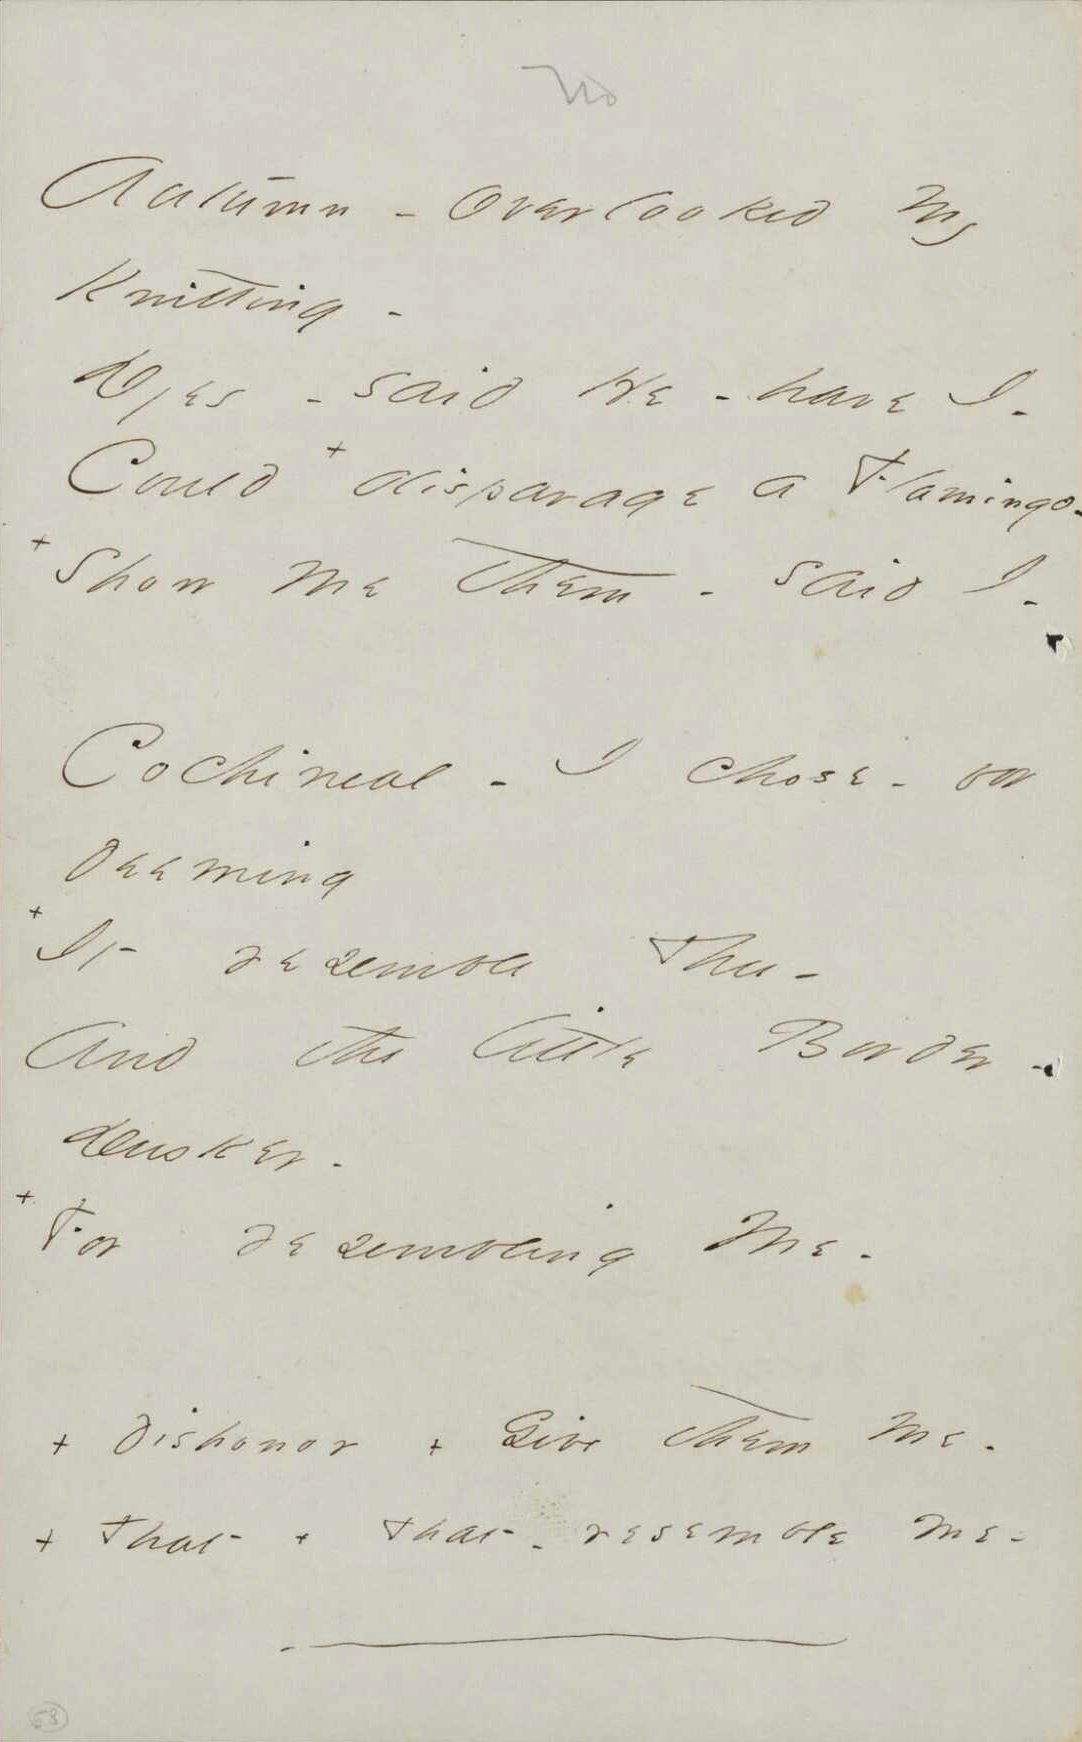 No
Autumn - overlooked my
Knitting -
Dyes - said He - have I -
Could + disparage a Flamingo -
+ Show Me them - said I -
Cochineal - I chose - for
deeming
+ It resemble Thee -
And the little Border -
Dusker -
+ For resembling Me -
+ dishonor + Give them Me -
+ that + that - resemble me -
53